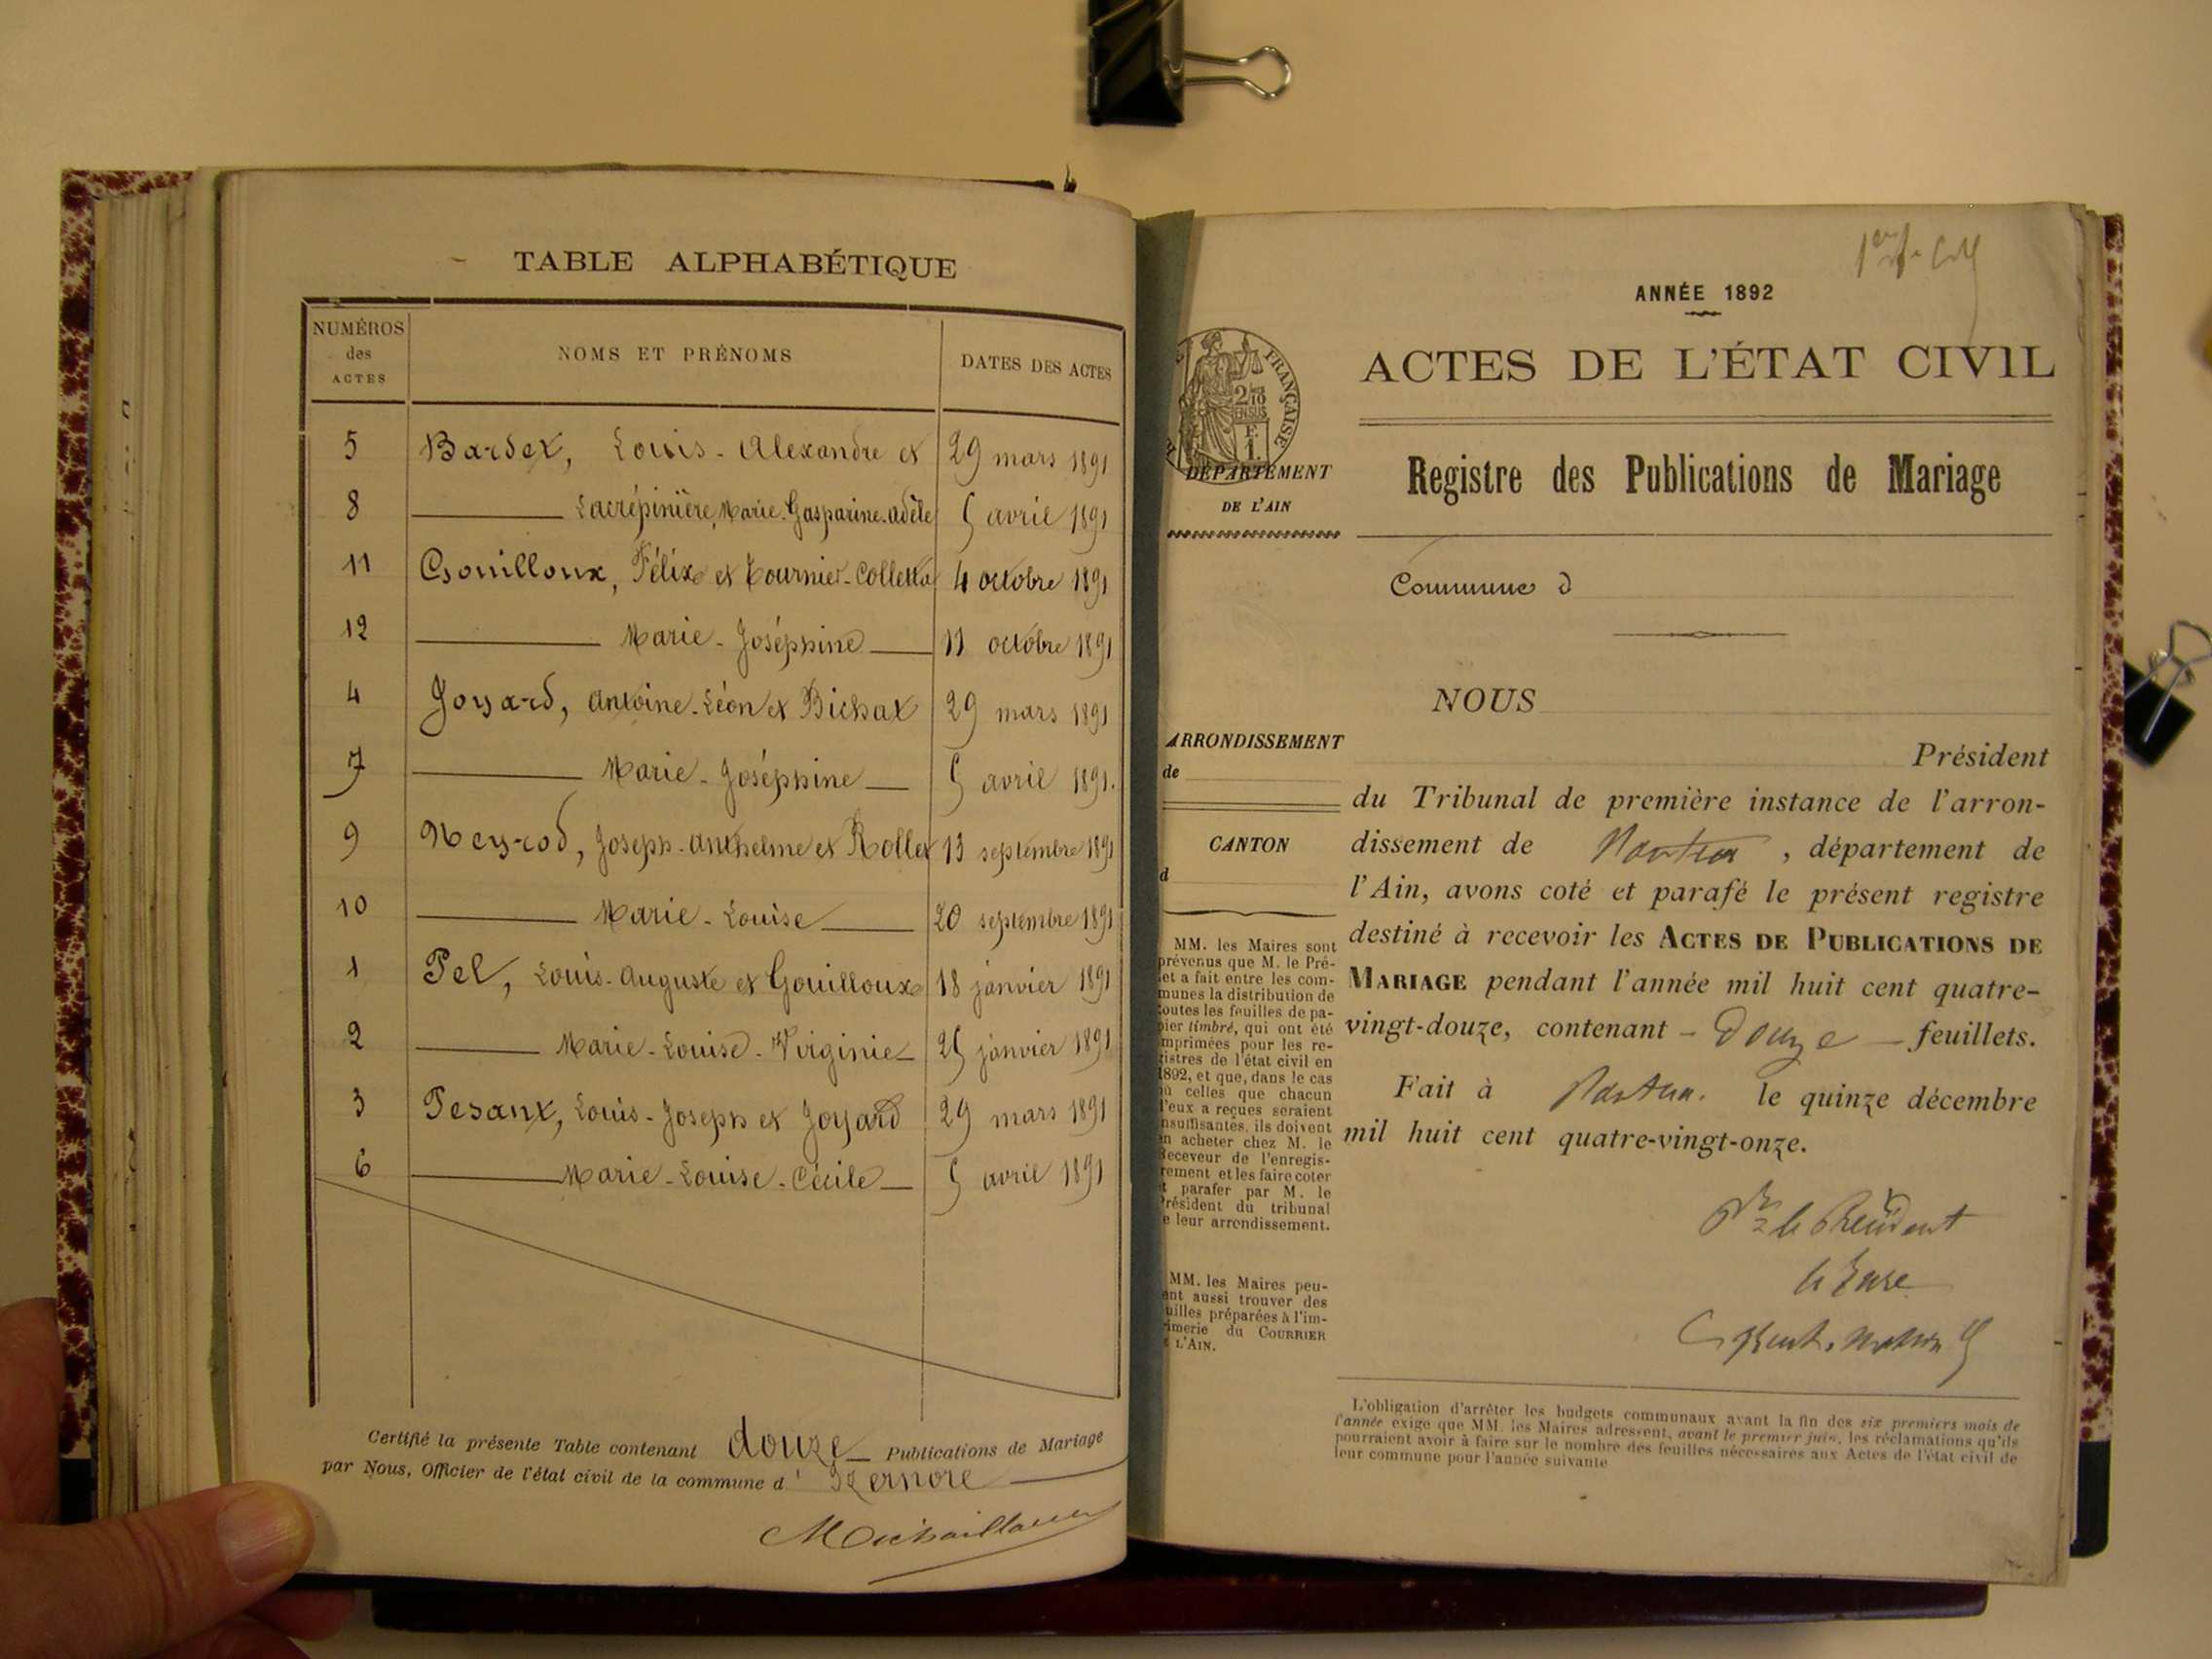 TABLE ALPHABÉTIQUE
NUMÉROS
des
ACTES
NOMS ET PRÉNOMS
DATES DES ACTES
5 Bardet, Louis-Alexandre et 29 mars 1891
8 Lacrépinière, Marie-Gasparine-Adèle 5 avril 1891
11 Gouilloux, Félix et Tournier-Colletta 4 octobre 1891
12 Marie-Joséphine 11 octobre 1891
4 Joyard, Antoine-Léon et Bichat 29 mars 1891
7 Marie-Joséphine 5 avril 1891.
9 Neyrod, Joseph-Anthelme et Rollet 13 septembre 1891
10 Marie-Louise 20 septembre 1891
1 Pel, Louis-Auguste et Gouilloux 18 janvier 1891
2 Marie-Louise-Virginie 25 janvier 1891
3 Pesant, Louis-Joseph et Joyard 29 mars 1891
6 Marie-Louise-Cécile 5 avril 1891
Certifié la présente Table contenant douze Publications de Mariage
par Nous, Officier de l'état civil de la commune d'Izernore
ANNÉE 1892
FRANÇAISE
2/10
EN SUS
F.
1.
ACTES DE L'ÉTAT CIVIL
Registre des Publications de Mariage
DÉPARTEMENT
DE L'AIN
Commune d
NOUS
ARRONDISSEMENT
de
CANTON
d
Président
du Tribunal de première instance de l'arron-
dissement de Nantua, département de
l'Ain, avons coté et parafé le présent registre
destiné à recevoir les ACTES DE PUBLICATIONS DE
MARIAGE pendant l'année mil huit cent quatre-
vingt-douze, contenant - Douze - feuillets.
Fait à Nantua. le quinze décembre
mil huit cent quatre-vingt-onze.
Pr le Président
le Juge
MM. les Maires sont
prévenus que M. le Pré-
et a fait entre les com-
munes la distribution de
toutes les feuilles de pa-
pier timbré, qui ont été
imprimées pour les re-
gistres de l'état civil en
1892, et que, dans le cas
où celles que chacun
d'eux a reçues seraient
insuffisantes, ils doivent
en acheter chez M. le
Receveur de l'enregis-
trement et les faire coter
et parafer par M. le
Président du tribunal
de leur arrondissement.
MM. les Maires peu-
vent aussi trouver des
feuilles préparées à l'im-
primerie du COURRIER
DE L'AIN.
L'obligation d'arrêter les budgets communaux avant la fin des six premiers mois de
l'année exige que MM. les Maires adressent, avant le premier juin, les réclamations qu'ils
pourraient avoir à faire sur le nombre des feuilles nécessaires aux Actes de l'état civil de
leur commune pour l'année suivante